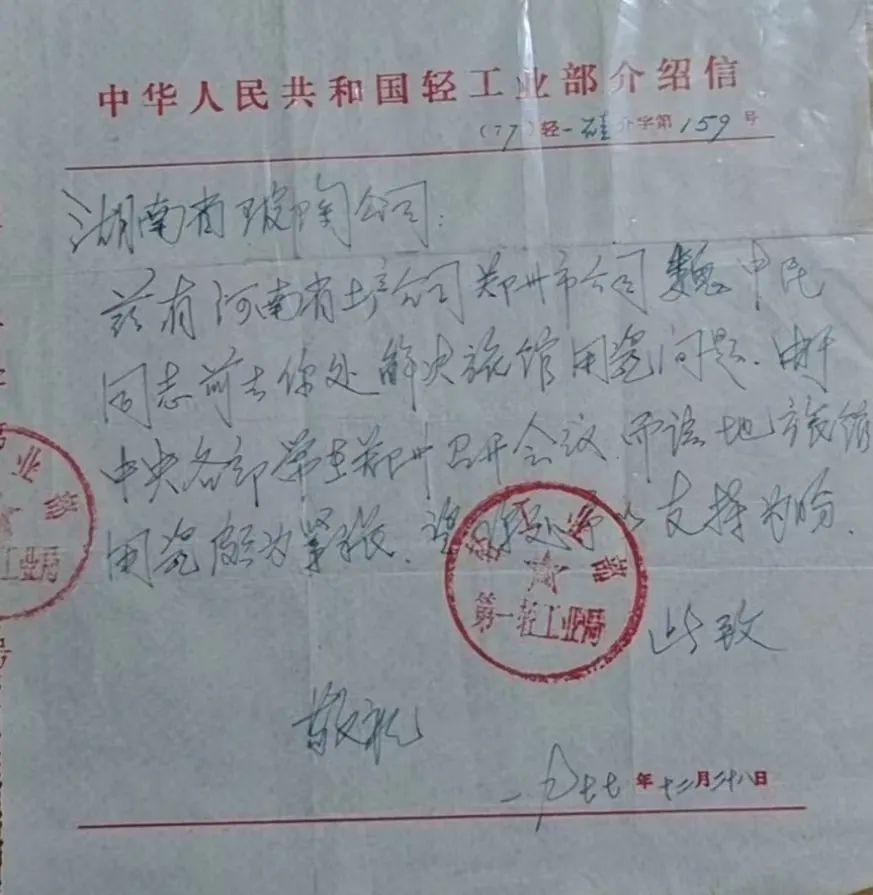 中华人民共和国轻工业部介绍信
(77)轻一硅介字第159号
湖南省玻陶公司:
兹有河南省土产公司郑州市公司魏中民
同志前去你处解决旅馆用瓷问题.由于
中央各部常在郑州召开会议.而该地旅馆
用瓷颇为紧张.望予以支持为盼.
轻工业部
第一轻工业局
此致
敬礼
一九七七年十二月二十八日
业部
工业局
号